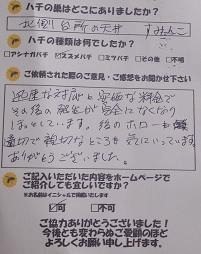 ハチの巣はどこにありましたか?
北側台所の天井 すみっこ
ハチの種類は何でしたか?
□アシナガバチ ☑スズメバチ □ミツバチ □その他 □不明
ご依頼された際のご意見・ご感想をお聞かせ下さい
迅速な対応と安価な料金で
その後の発生が完全になくなり
ほっとしています。後のホローも
適切で親切なところを気にいっています
ありがとうございました。
ご記入いただいた内容をホームページで
ご紹介しても宜しいですか?
※お名前はイニシャルで掲載いたします
☑可 □不可
ご協力ありがとうございました!
今後とも変わらぬご愛顧のほど
よろしくお願い申し上げます。